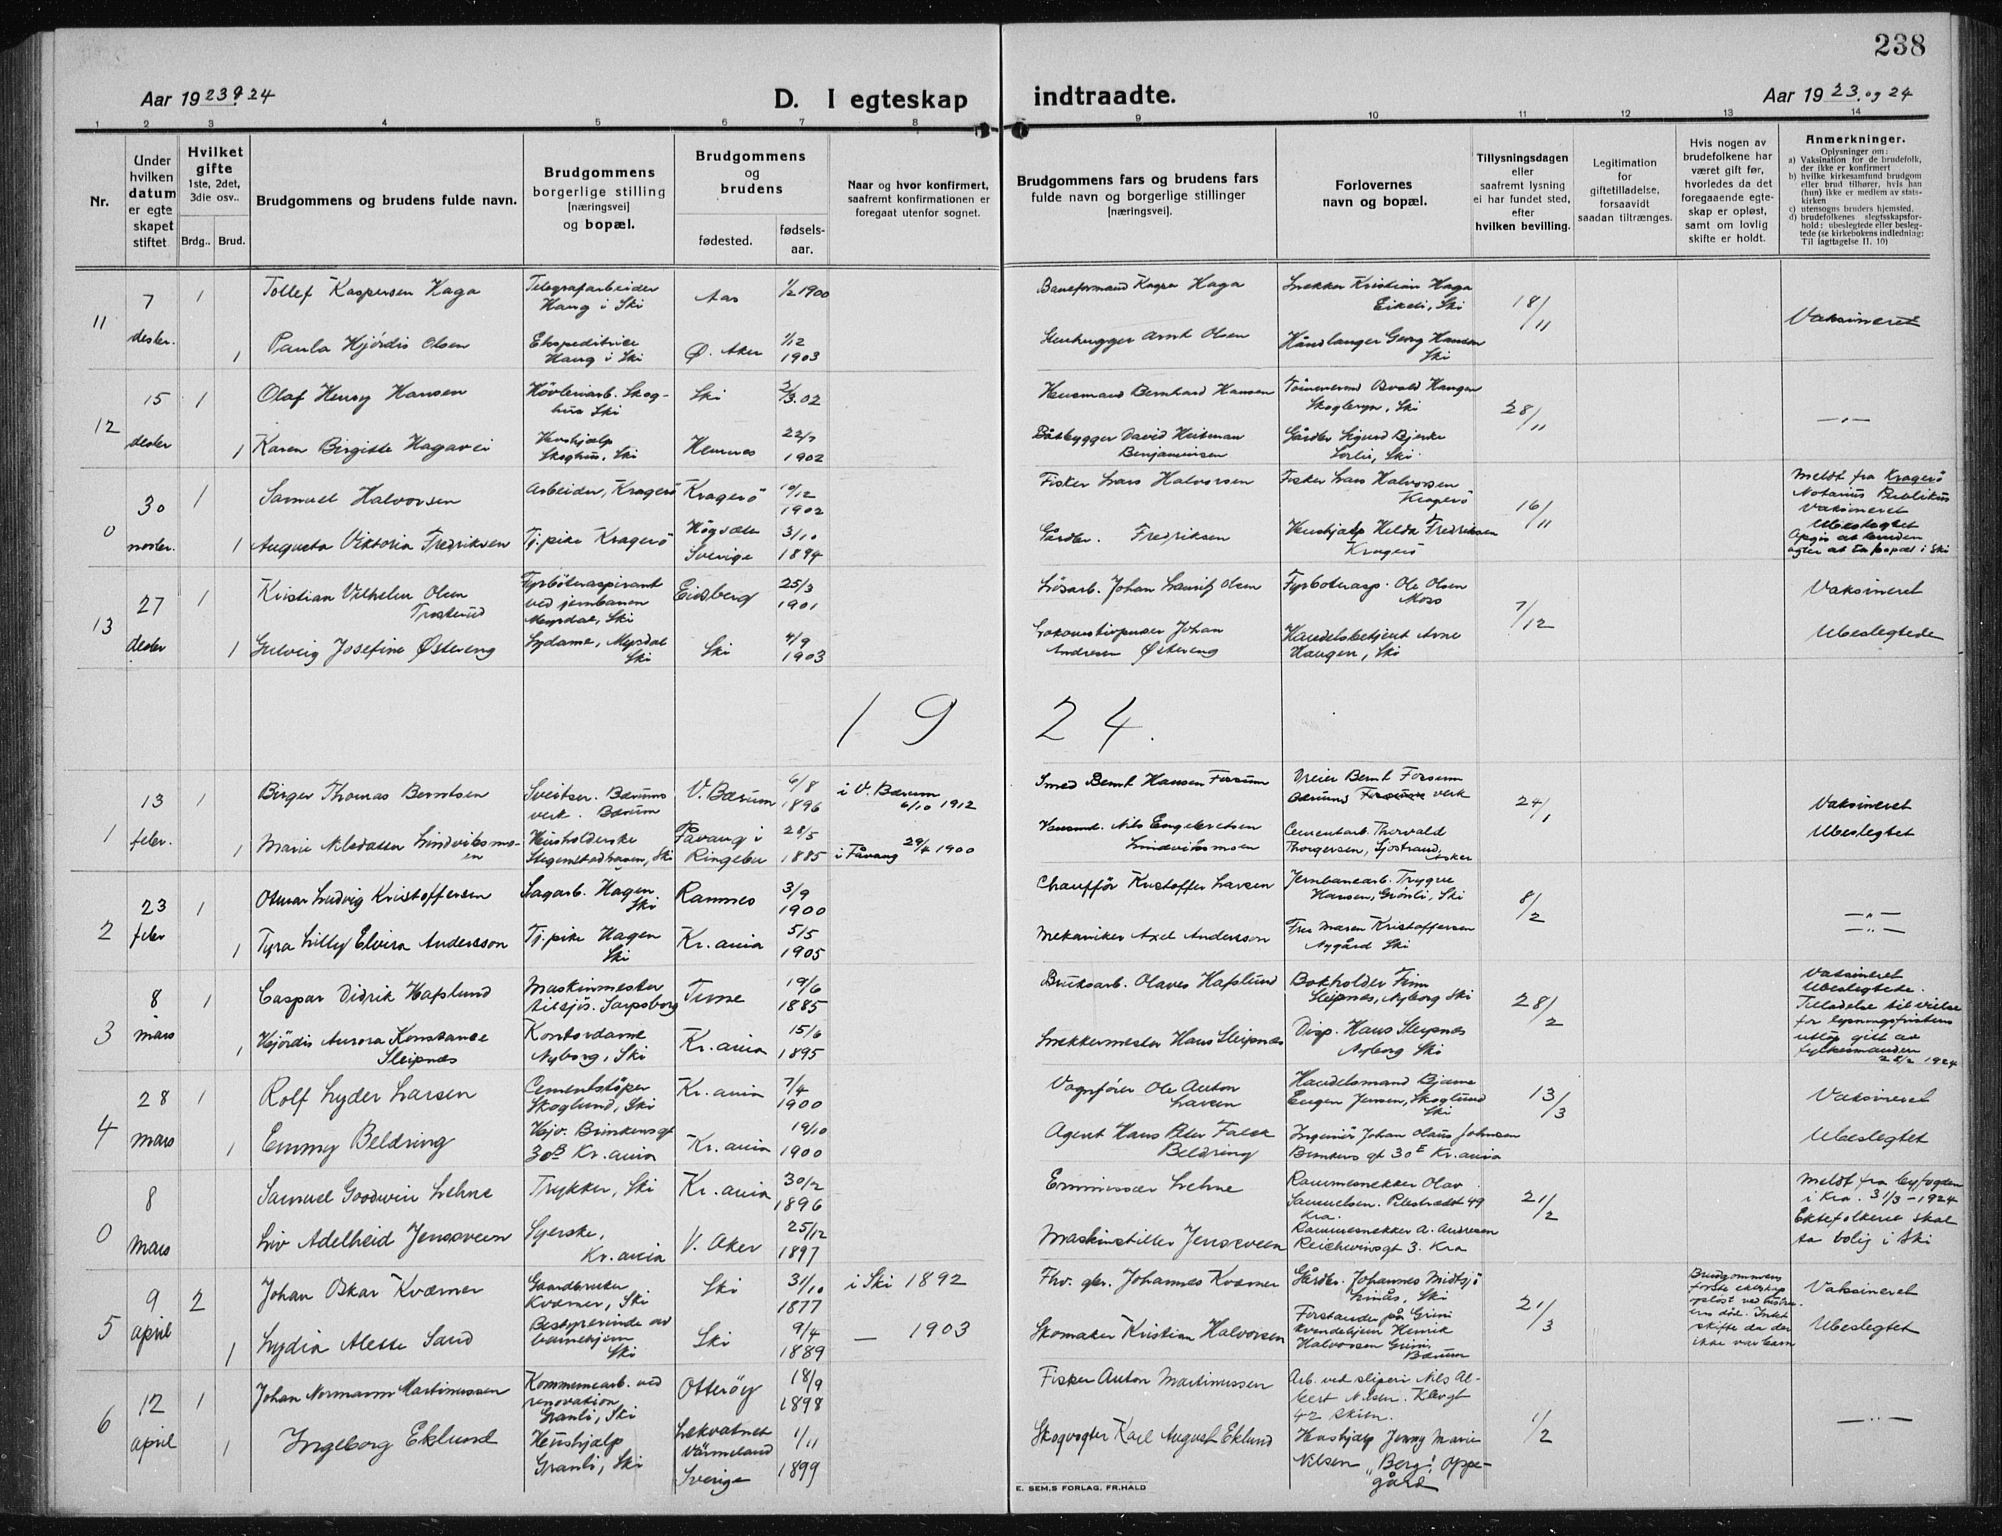 238
Aar 1923 & 24
D. I egteskap indtraadte.
Aar 1923 og 24
1 2 3 4 5 6 7 8 9 10 11 12 13 14
Nr.
Under hvilken datum er egteskapet stiftet
Hvilket gifte 1ste, 2det, 3die osv..
Brdg.. Brud.
Brudgommens og brudens fulde navn.
Brudgommens borgerlige stilling [næringsvei] og bopæl.
Brudgommens og brudens
fødested.
fødsels-aar.
Naar og hvor konfirmert, saafremt konfirmationen er foregaat utenfor sognet.
Brudgommens fars og brudens fars fulde navn og borgerlige stillinger [næringsvei].
Forlovernes navn og bopæl.
Tillysningsdagen eller saafremt lysning ei har fundet sted, efter hvilken bevilling.
Legitimation for giftetilladelse, forsaavidt saadan tiltrænges.
Hvis nogen av brudefolkene har været gift før, hvorledes da det foregaaende egteskap er opløst, samt om lovlig skifte er holdt.
Anmerkninger.
Oplysninger om:
a) Vaksination for de brudefolk, der ikke er konfirmert
b) hvilke kirkesamfund brudgom eller brud tilhører, hvis han (hun) ikke er medlem av statskirken
c) utensogns bruders hjemsted,
d) brudefolkenes slegtsskapsforhold: ubeslegtede eller beslegtede (se kirkebokens indledning: Til iagttagelse II. 10)
11 7 desbr. 1 Tollef Kaspersen Haga Telegrafarbeider Haug i Ski Aas 1/2 1900 Baneformand Haga Snekker Kristian Haga Eikeli, Ski 18/11 Vaksineret
1 Paula Hjördis Olsen Ekspeditrice Haug i Ski Ø. Aker 1/12 1903 Stenhugger Arnt Olsen Håndlanger Georg Hansen Ski
12 15 desbr 1 Olaf Henry Hansen Høvleriarb. Skoghus Ski Ski 02 Husmand Bernhard Hansen Osvald Haugen Ski 28/11 —„—
1 Karen Birgitte Hagavei Hushjælp Skoghus, Ski Hemnes 1902 Båtbygger David Heitman Benjaminsen Gårdbr Sigurd Bjerke Ski
0 30 novbr. 1 Samuel Halvorsen Arbeider, Kragerö Kragerö 10/12 1902 Fisker Lars Halvorsen Fisker Lars Halvorsen Kragerö 16/11 Meldt fra Kragerö Notarius Publikus Vaksineret Ubeslegtet
1 Augusta Viktoria Fredriksen Tj.pike Kragerö Sverige 3/10 1894 Gårdbr. Fredriksen Hushjælp Helda Fredriksen Kragerö Opgis at bruden agter at ta bopæl i Ski
13 27 desbr 1 Kristian Vilhelm Olsen Trosterud Fyrböteraspirant ved jernbanen Myrdal, Ski Eidsberg 25/3 1901 Lösarb. Johan Lauritz Olsen Fyrböterasp. Ole Olsen Moss 7/12 Vaksineret
1 Josefine Østereng Sydame, Myrdal Ski Ski 4/9 1903 Johan Andresen Østereng Handelsbetjent Arne Haugen, Ski Ubeslegtede
1924.
1 13 febr. 1 Birger Thomas Berntsen Sveitser. Bærums verk. Bærum V. Bærum 6/8 1896 i V. Bærum 6/10 1912 Smed Bernt Hansen Fossum Bernt Fossum Bærums verk 24/1 Vaksineret
1 Marie Husholderske Ski Fåvang i Ringebu 28/5 1885 i Fåvang 29/4 1900 Nils Engebretsen Cementarb. Thorvald Thorgersen, Sjöstrand, Asker Ubeslegtet
2 23 febr 1 Otmar Ludvig Kristoffersen Sagarb. Hagen Ski Ramnes 3/9 1900 Chaufför Kristoffer Larsen Jernbanearb. Trygve Hansen, Grönli, Ski 8/2 —„—
1 Tyra Lilly Elvira Andersson Tj.pike Hagen Ski Kr.ania 5/5 1905 Mekaniker Axel Andersson Fru Maren Kristoffersen Nygård Ski —„—
3 8 mars 1 Caspar Didrik Hafslund Maskinmester Sarpsborg Tune 19/6 1885 Bruksarb. Olaves Hafslund Bokholder Finn Sleipnes, Nyborg Ski 28/2 Vaksineret Ubeslegtede.
1 Hjördis Aurora Konstance Sleipnes Kontordame Nyborg, Ski Kr.ania 15/6 1895 Snekkermester Hans Sleipnes Disp. Hans Sleipnes Nyborg Ski Tilladelse til vielse för lysningsfristens utløp gitt av fylkesmanden 28/2 1924
4 28 mars 1 Rolf Lyder Larsen Cementstöper Skoglund, Ski Kr.ania 7/4 1900 Vognfører Ole Anton Larsen Handelsmand Bjarne Eugen Jensen, Skoglund Ski 13/3 Vaksineret
1 Emmy Beldring Kr.ania Kr.ania 19/10 1900 Agent Hans Peter Falck Beldring Ingeniör Johan Olaus Johnsen 30 E Kr.ania Ubeslegtet
0 8 mars Samuel Goodwin Lehne Trykker, Ski Kr.ania 30/2 1896 Emmissær Lehne Rammesnekker Olav Samuelsen. Pilestrædet 49 Kra. 21/2 Meldt fra byfogden i Kra. 31/3 - 1924
Liv Adelheid Jensveen Syerske, Kr.ania V. Aker 25/12 1897 Maskinstiller Jensveen Rammesnekker A. Andresen 3. Kra Ektefolkene skal ta bolig i Ski
5 9 april 2 Johan Oskar Kværner Gaardbruker Kværner, Ski Ski 31/10 1877 i Ski 1892 Fhv. gbr. Johannes Kværner Gårdbr. Johannes Midtsjö Ski 21/3 Brudgommens første ekteskap opløst ved hustruens död. Intet skifte da der ikke var barn Vaksineret
1 Lydia Alette Sand Bestyrerinde av barnehjem Ski Ski 9/4 1889 — 1903 Skomaker Kristian Halvorsen Forstander på Grini kvindehjem Henrik Halvorsen Grini Bærum Ubeslegtet
6 12 april 1 Johan Normann Martinussen Kommunearb. ved renovation Granli, Ski Otteröy 18/9 1898 Fisker Anton Martinussen Arb. ved sliperi Nils Albert Nilsen. 42 Skien. 1/2 —„—
1 Ingeborg Eklund Hushjælp Granli, Ski Lekvatnet Värmeland Sverige 1/11 1899 Skogvogter Karl August Eklund Hushjælp Jenny Marie Nilsen „Berg", Oppegård
E. SEM,S FORLAG, FR.HALD